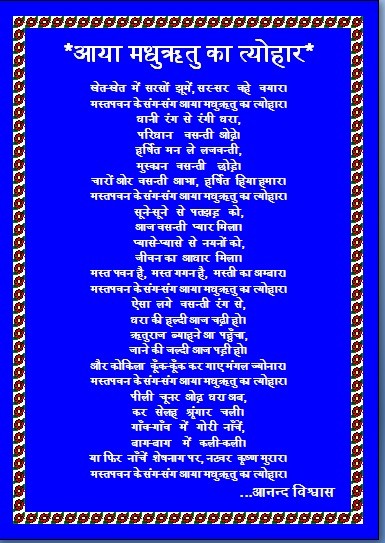 *आया मधुऋतु का त्योहार*
खेत-खेत में सरसों झूमें, सर-सर बहे वयार।
मस्तपवन के संग-संग आया मधुऋतु का त्योहार।
धानी रंग से रंगी धरा,
परिधान वसन्ती ओढ़े।
हर्षित मन ले लजवन्ती,
मुस्कान वसन्ती छोड़े।
चारों ओर वसन्ती आभा, हर्षित हिया हमारा।
मस्तपवन के संग-संग आया मधुऋतु का त्योहार।
सूने-सूने से पतझड़ को,
आज वसन्ती प्यार मिला।
प्यासे-प्यासे से नयनों को,
जीवन का आधार मिला।
मस्त पवन है, मस्त गगन है, मस्ती का अम्बार।
मस्तपवन के संग-संग आया मधुऋतु का त्योहार।
ऐसा लगे वसन्ती रंग से,
धरा की हल्दी आज चढ़ी हो।
ऋतुराज ब्याहने आ पहुँचा,
जाने की जल्दी आज पड़ी हो।
और कोकिला कूँक-कूँक कर गाए मंगल ज्योनार।
मस्तपवन के संग-संग आया मधुऋतु का त्योहार।
पीली चूनर ओढ़ धरा अब,
कर सोलह श्रृंगार चली।
गाँव-गाँव में गोरी नाँचें,
बाग-बाग में कली-कली।
या फिर नाँचें शेषनाग पर, नटवर कृष्ण मुरार।
मस्तपवन के संग-संग आया मधुऋतु का त्योहार।
...आनन्द विश्वास